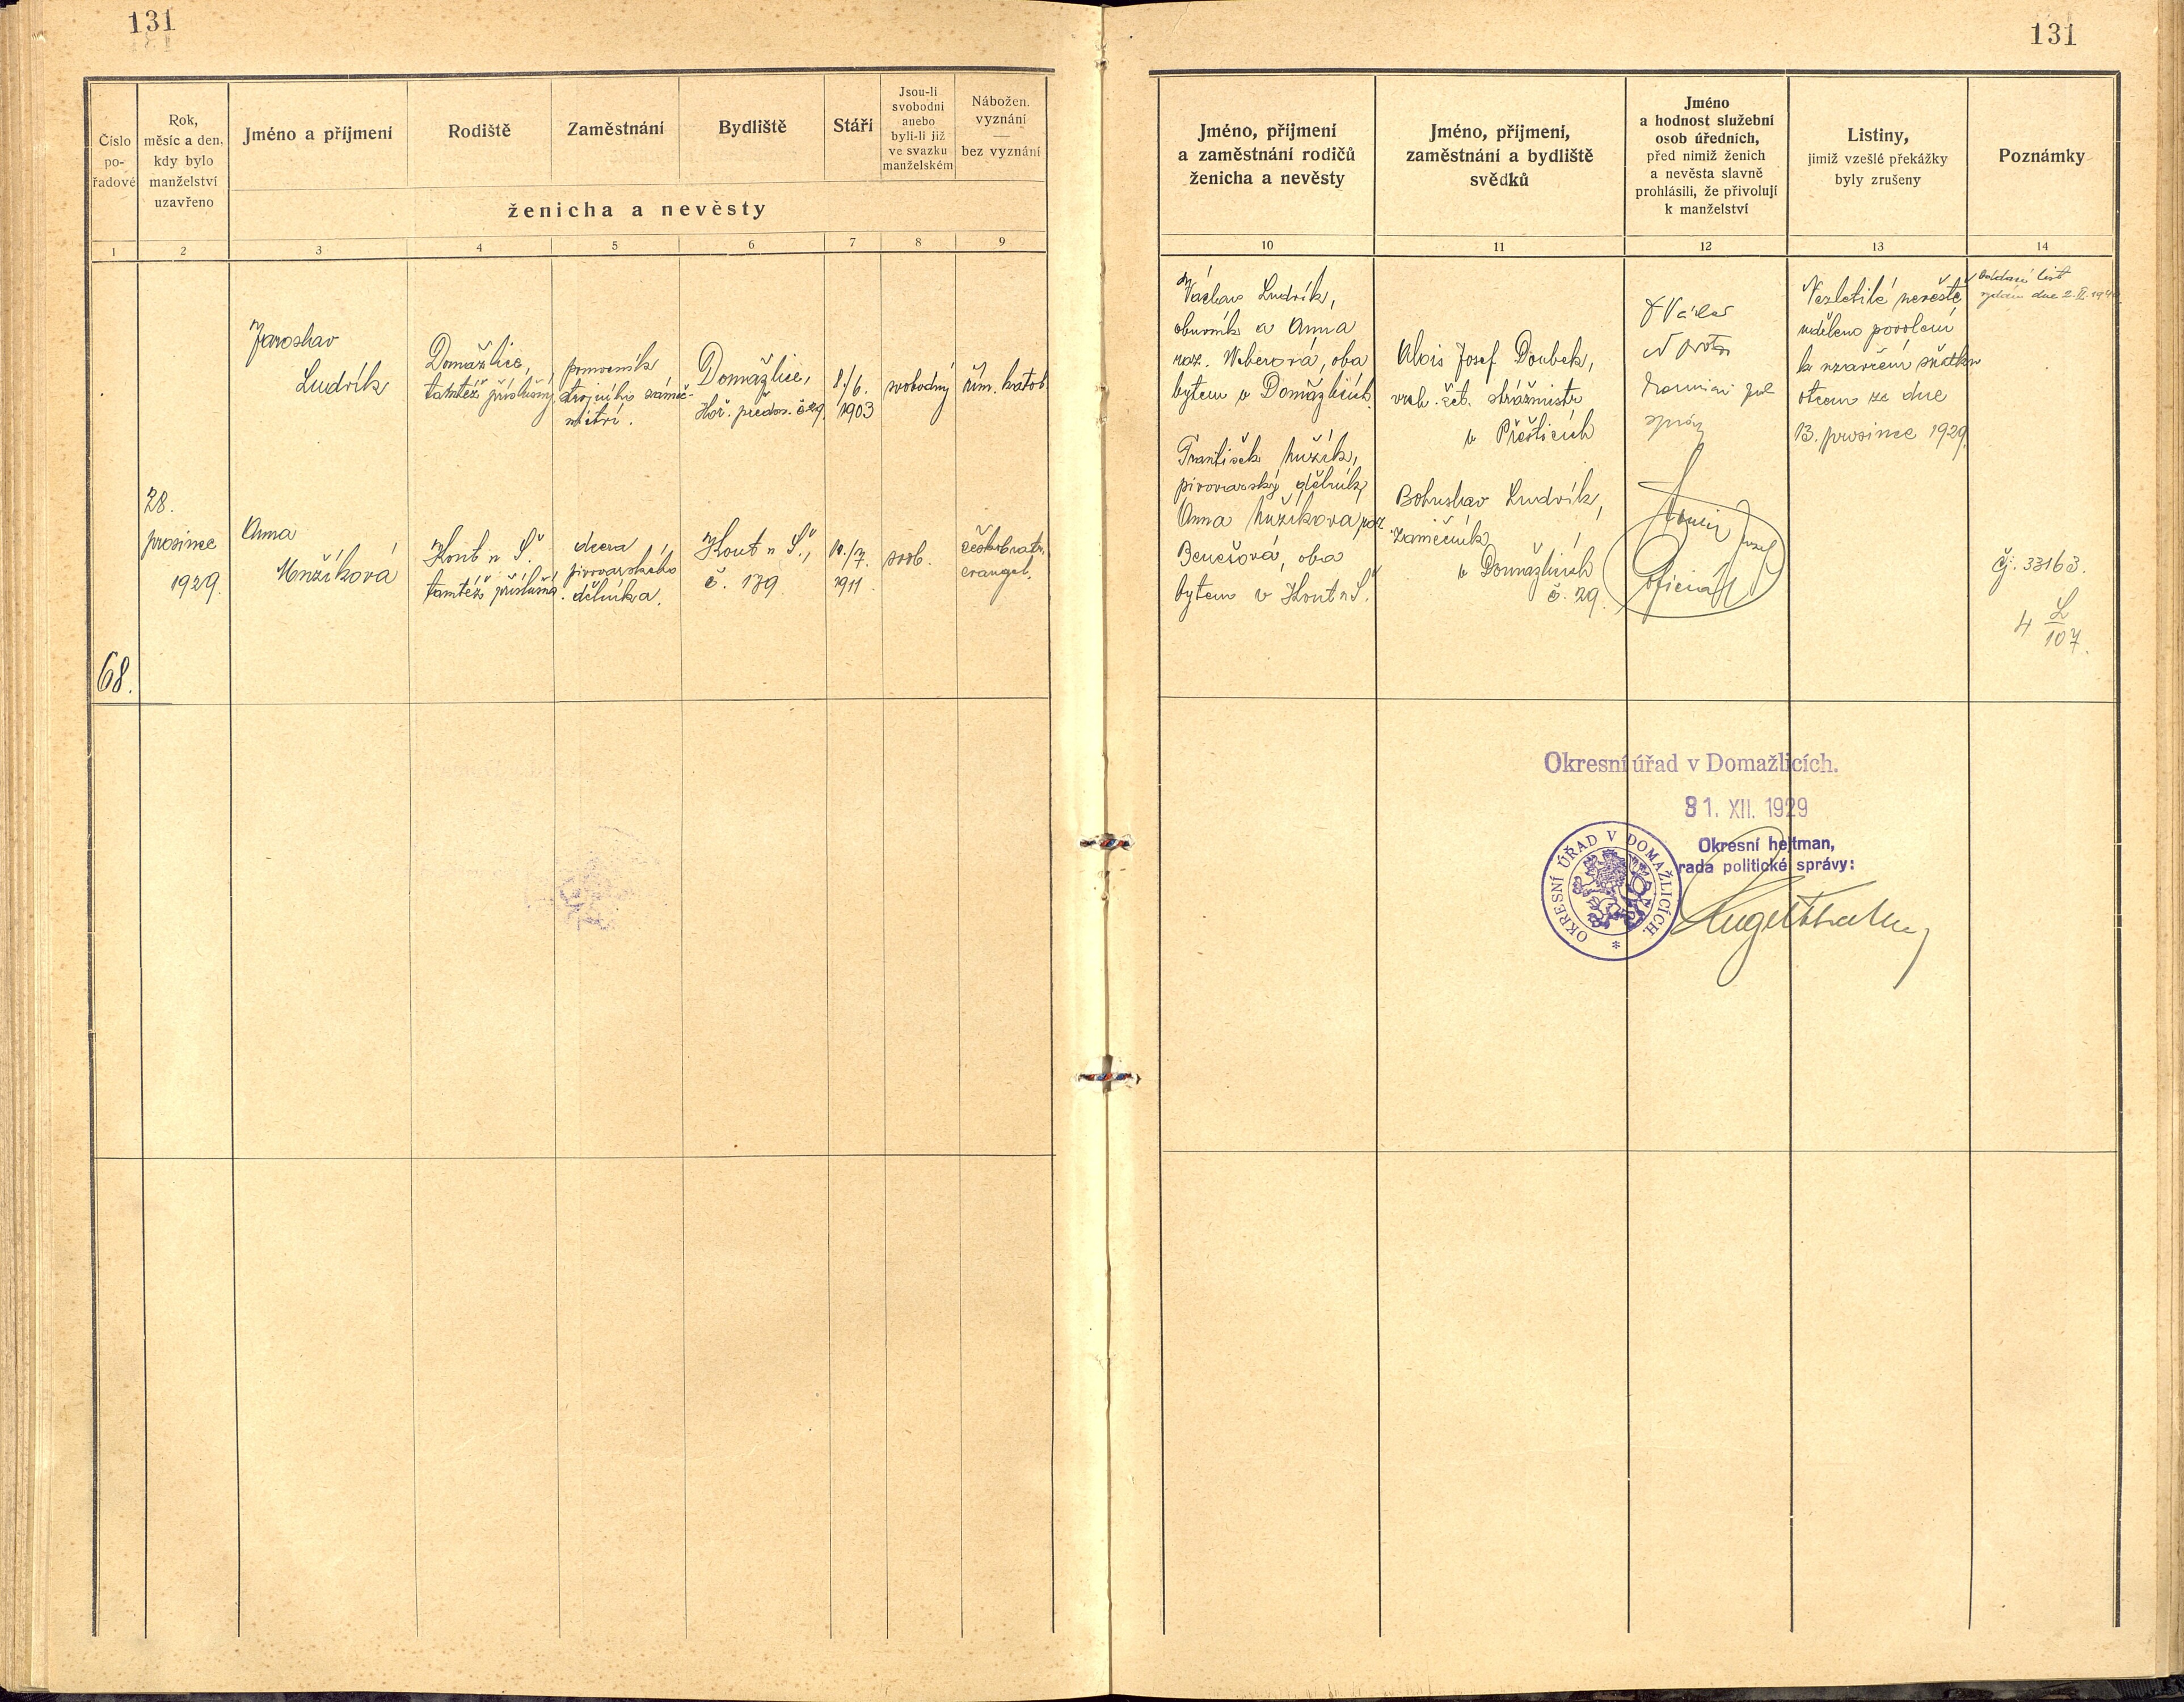 131
131
Číslo
po-
řadové
Rok,
měsíc a den,
kdy bylo
manželství
uzavřeno
Jméno a příjmení
Rodiště
Zaměstnání
Bydliště
Stáří
Jsou-li
svobodni
anebo
byli-li již
ve svazku
manželském
Nábožen.
vyznání
—
bez vyznání
ženicha a nevěsty
1
2
3
4
5
6
7
8
9
Jméno, příjmení
a zaměstnání rodičů
ženicha a nevěsty
Jméno, příjmení,
zaměstnání a bydliště
svědků
Jméno
a hodnost služební
osob úředních,
před nimiž ženich
a nevěsta slavně
prohlásili, že přivolují
k manželství
Listiny,
jimiž vzešlé překážky
byly zrušeny
Poznámky
10
11
12
13
14
68.
28.
prosince
1929.
Jaroslav
Ludvík
Domažlice,
tamtéž příslušný,
pomocník
strojního zámeč-
nictví.
Domažlice,
Hoř. předm. č. 29.
8./6.
1903
svobodný
řím. katol.
Anna
Mužíková
Kout n Š.
tamtéž příslušná.
dcera
pivovarského
dělníka.
Kout n Š.,
č. 179.
10./7.
1911.
svob.
českobratr.
evangel.
Václav Ludvík,
obuvník a Anna
roz. Weberová, oba
bytem v Domažlicích.
František Mužík,
pivovarský dělník,
Anna Mužíková roz.
Benešová, oba
bytem v Kout n Š.
Alois Josef Doubek,
vrch. čet. strážmistr
v Přešticích
Bohuslav Ludvík,
zámečník
v Domažlicích
č. 29.
Josef
oficiál
Nezletilé nevěstě
uděleno povolení
k uzavření sňatku
otcem ze dne
13. prosince 1929.
Oddací list
vydán dne
čj. 33163.
4 L
107.
Okresní úřad v Domažlicích.
31. XII. 1929
Okresní hejtman,
rada politické správy:
OKRESNÍ ÚŘAD V DOMAŽLICÍCH.